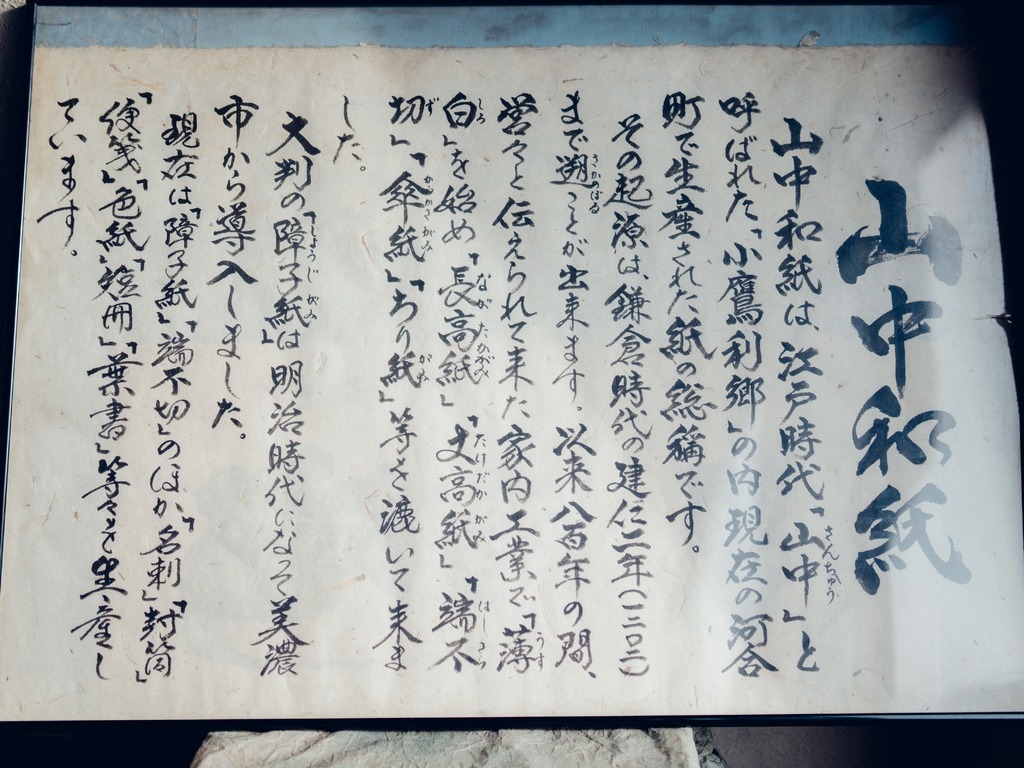 山中和紙
山中和紙は、江戸時代「山中」と
呼ばれた「小鷹利郷」の内現在の河合
町で生産された紙の総稱です。
その起源は、鎌倉時代の建仁二年(一二〇二)
まで遡ことが出来ます。以来八百年の間、
営々と伝えられて来た家内工業で「薄
白」を始め「長高紙」「丈高紙」「端不
切」「傘紙」「ちり紙」等を漉いて来ま
した。
大判の「障子紙」は明治時代になって美濃
市から導入しました。
現在は「障子紙」「端不切」のほか「名刺」「封筒」
「便箋」「色紙」「短冊」「葉書」等々を生産し
ています。